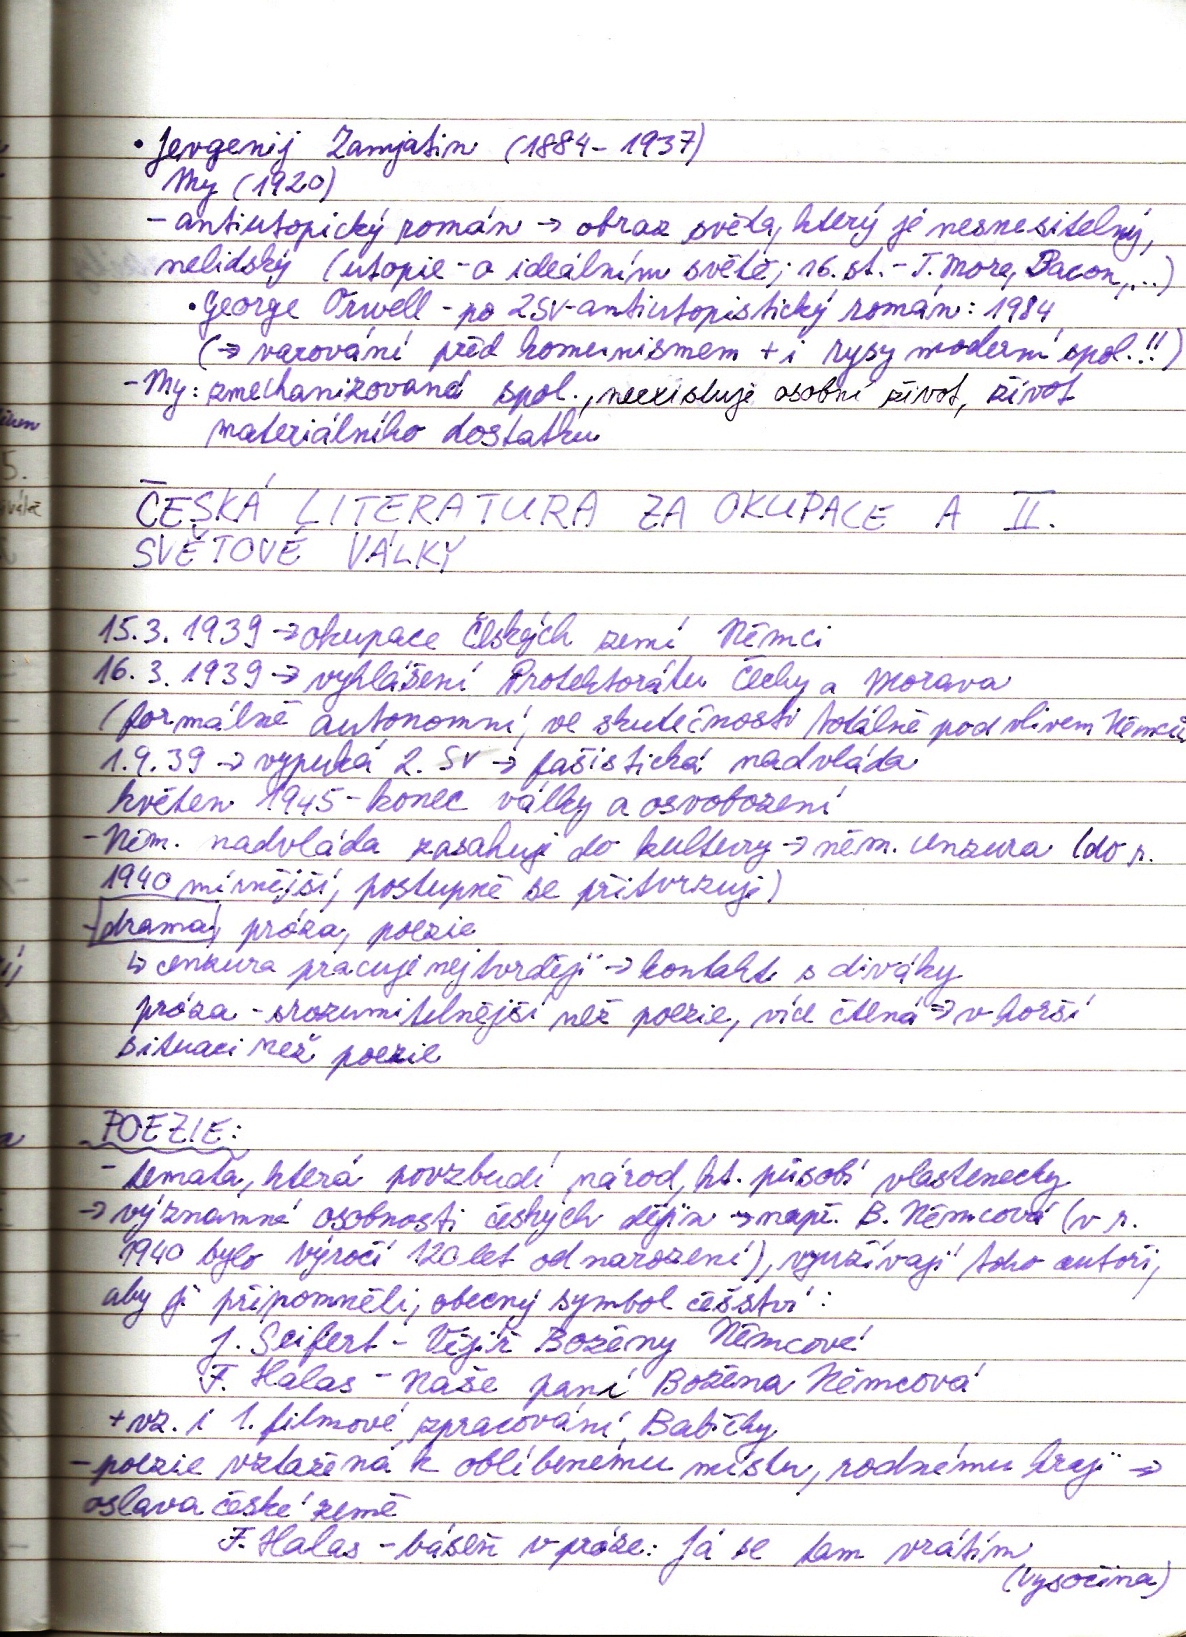 • Jevgenij Zamjatin (1884-1937)
My (1920)
- antiutopický román → obraz světa, který je nesnesitelný,
nelidský (utopie - o ideálním světě; 16. st. - T. More, Bacon,...)
• George Orwell - po 2SV - antiutopistický román: 1984
(→ varování před komunismem + i rysy moderní spol.!!)
- My: zmechanizovaná spol., neexistuje osobní život, život
materiálního dostatku
ČESKÁ LITERATURA ZA OKUPACE A II.
SVĚTOVÉ VÁLKY
15.3. 1939 → okupace českých zemí Němci
16.3. 1939 → vyhlášení Protektorátu Čechy a Morava
(formálně autonomní, ve skutečnosti totálně pod vlivem Němců
1.9.39 → vypuká 2. SV → fašistická nadvláda
květen 1945 - konec války a osvobození
- Něm. nadvláda zasahuje do kultury → něm. cenzura (do r.
1940 mírnější, postupně se přitvrzuje)
- drama, próza, poezie
↳ cenzura pracuje nejtvrději → kontakt s diváky
próza - srozumitelnější než poezie, více čtená → v horší
situaci než poezie
POEZIE:
- témata, která povzbudí národ, kt. působí vlastenecky
→ významné osobnosti českých dějin → např. B. Němcová (v r.
1940 bylo výročí 120 let od narození), využívají toho autoři,
aby ji připomněli, obecný symbol češství:
J. Seifert - Vějíř Boženy Němcové
F. Halas - Naše paní Božena Němcová
+ vz. i 1. filmové zpracování Babičky
- poezie vztažená k oblíbenému místu, rodnému kraji →
oslava české země
F. Halas - báseň v próze: Já se tam vrátím
(Vysočina)